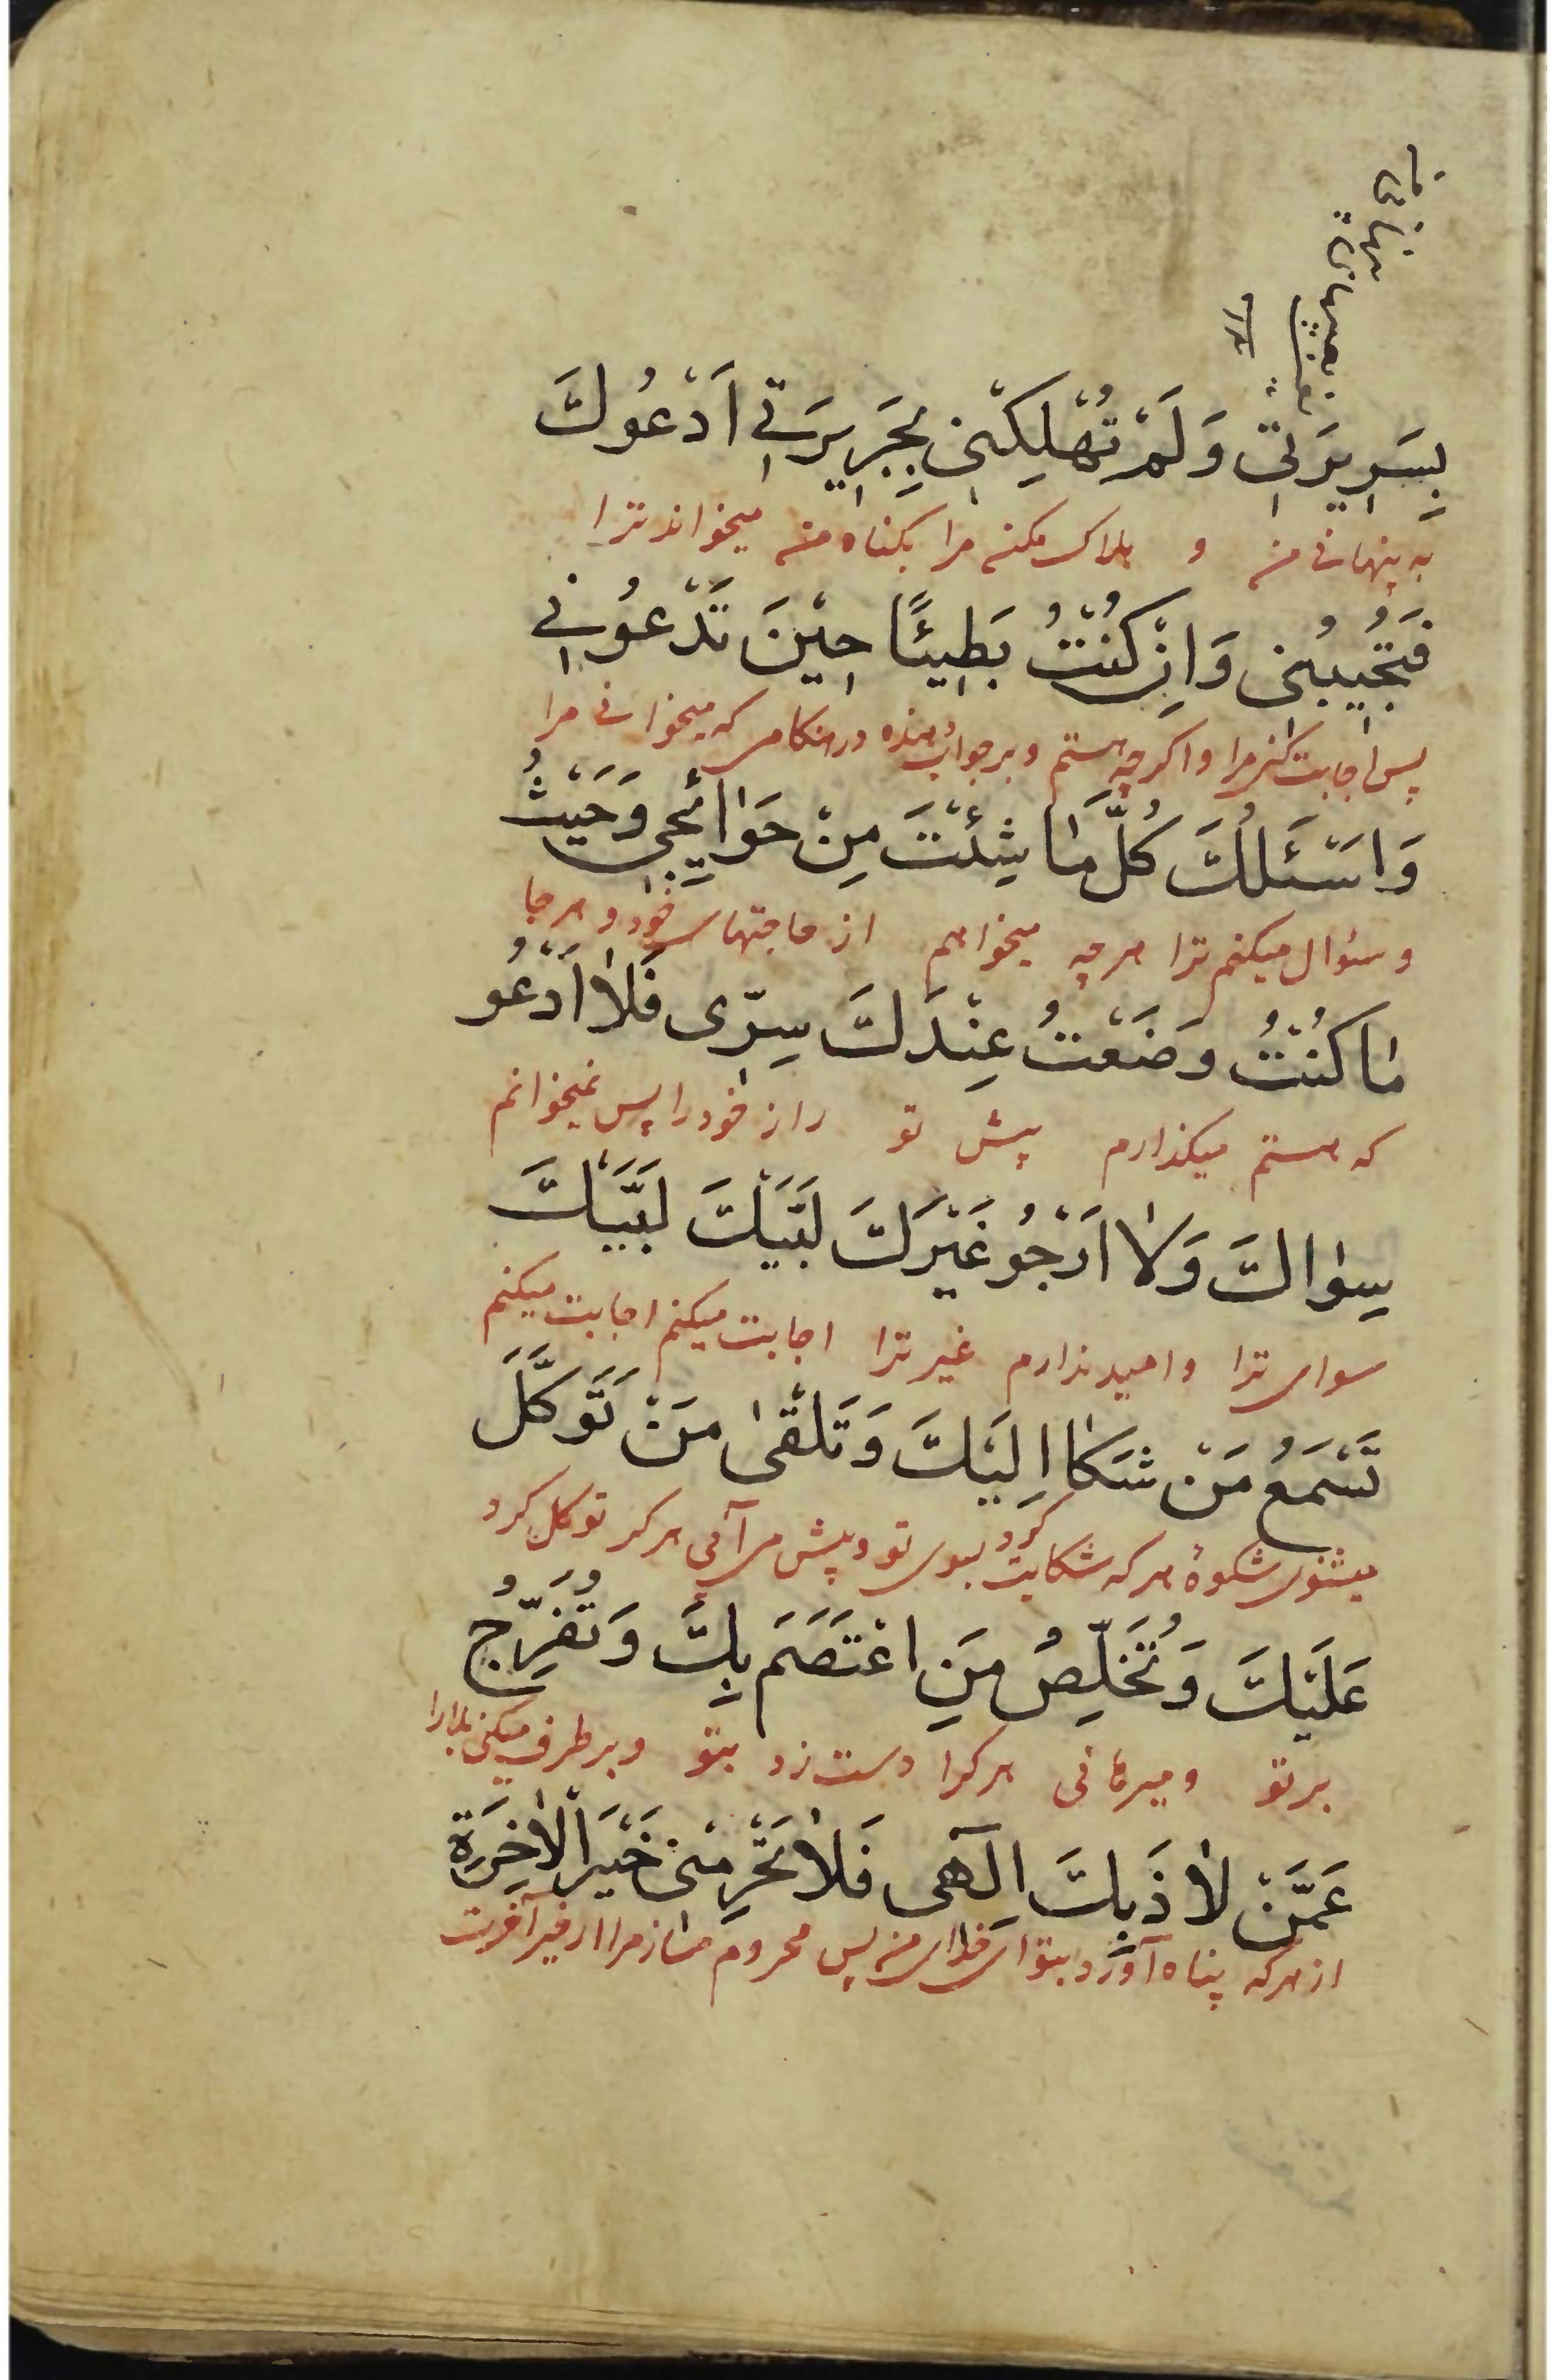 بِسَرِيرَتِي وَلَمْ تُهْلِكْنِي بِجَرِيرَتِي اَدْعُوكَ
به پنهانی من و هلاک مکن مرا بکناه من میخواند ترا
فَتُجِيبُنِي وَاِنْ كُنْتُ بَطِيئًا حِيْنَ تَدْعُونِي
پس اجابت کن مرا و اکرچه هستم و بر جواب دهنده در هنکامی که میخوانی مرا
وَاَسْئَلُكَ كُلَّ مٰا شِئْتَ مِنْ حَوٰائِجِي وَحَيْثُ
و سئوال میکنم ترا هرچه میخواهم از حاجتهای خود و هر جا
مٰا كُنْتُ وَضَعْتُ عِنْدَكَ سِرِّى فَلاٰ اَدْعُو
که هستم میکذارم پیش تو راز خود را پس نمیخوانم
سِوٰاكَ وَلاٰ اَرْجُو غَيْرَكَ لَبَّيْكَ لَبَّيْكَ
سوای ترا و امید ندارم غیر ترا اجابت میکنم اجابت میکنم
تَسْمَعُ مَنْ شَكٰا اِلَيْكَ وَتَلْقىٰ مَنْ تَوَكَّلَ
میشنوی شکوهٔ هر که شکایت کرد بسوی تو و پیش می آئی هر که توکل کرد
عَلَيْكَ وَتُخَلِّصُ مَنِ اعْتَصَمَ بِكَ وَتُفَرِّجُ
بر تو و میرهانی هر کرا دست زد بتو و بر طرف میکنی بلا را
عَمَّنْ لاٰذَ بِكَ اِلٓهى فَلاٰ تَحْرِمْنِى خَيْرَ الْاٰخِرَةِ
از هر که پناه آورد بتو ای خدای من پس محروم مساز مرا از خیر آخرت